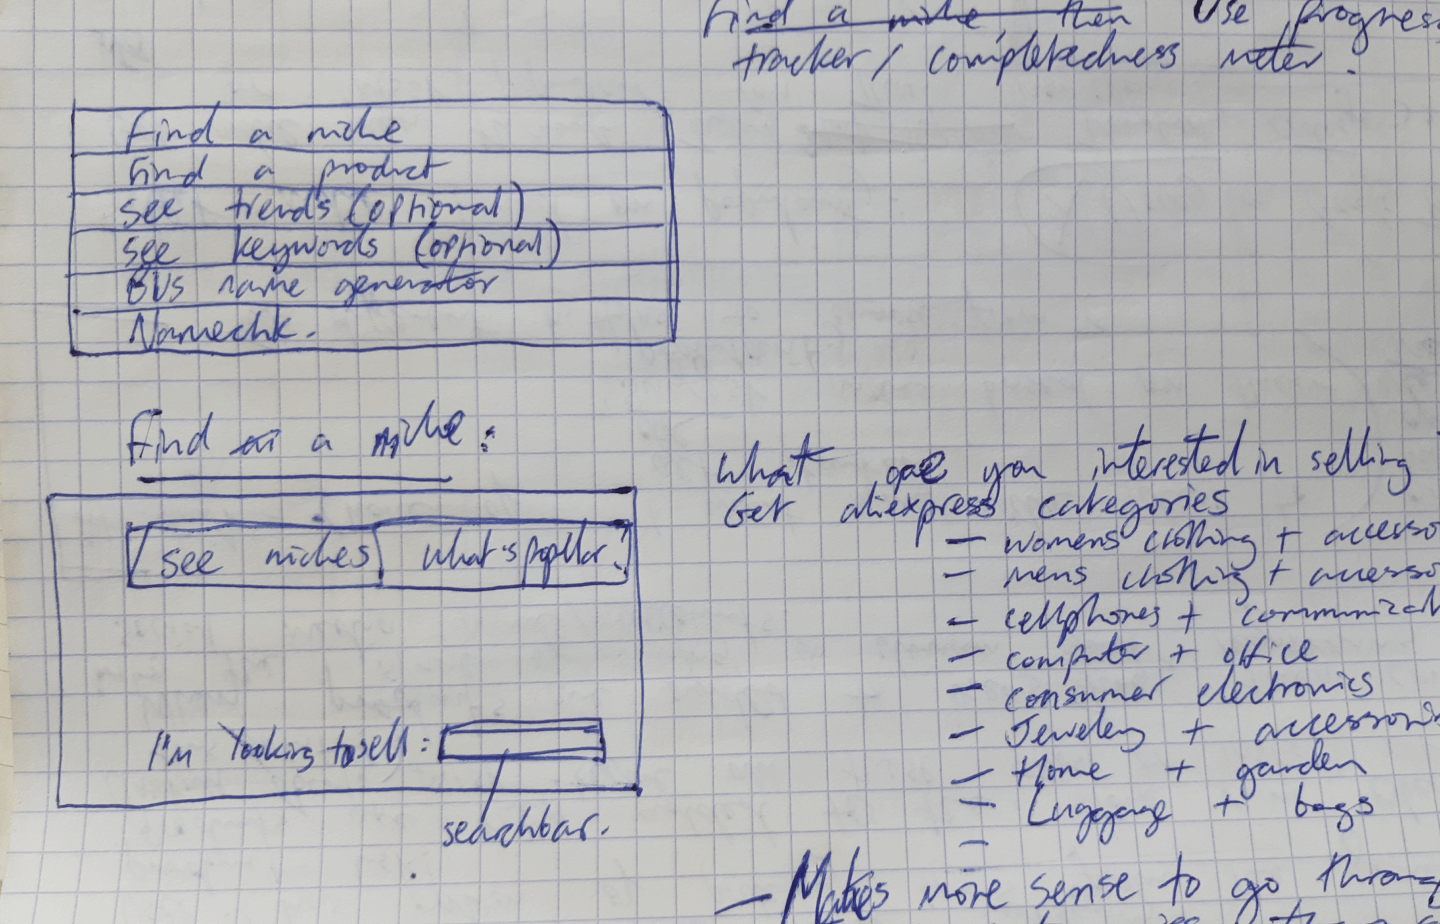 Find a niche, then Use progress
tracker / completedness meter.
Find a niche
Find a product
see trends (optional)
see keywords (optional)
BUS name generator
Namechk.
Find a niche:
see niches
what's popular?
I'm looking to sell:
searchbar.
What are you interested in selling
Get aliexpress categories
- womens clothing + accesso
- mens clothing + accesso
- cellphones + communicat
- computer + office
- consumer electronics
- Jewelery + accessori
- Home + garden
- Luggage + bags
-
- Makes more sense to go throug